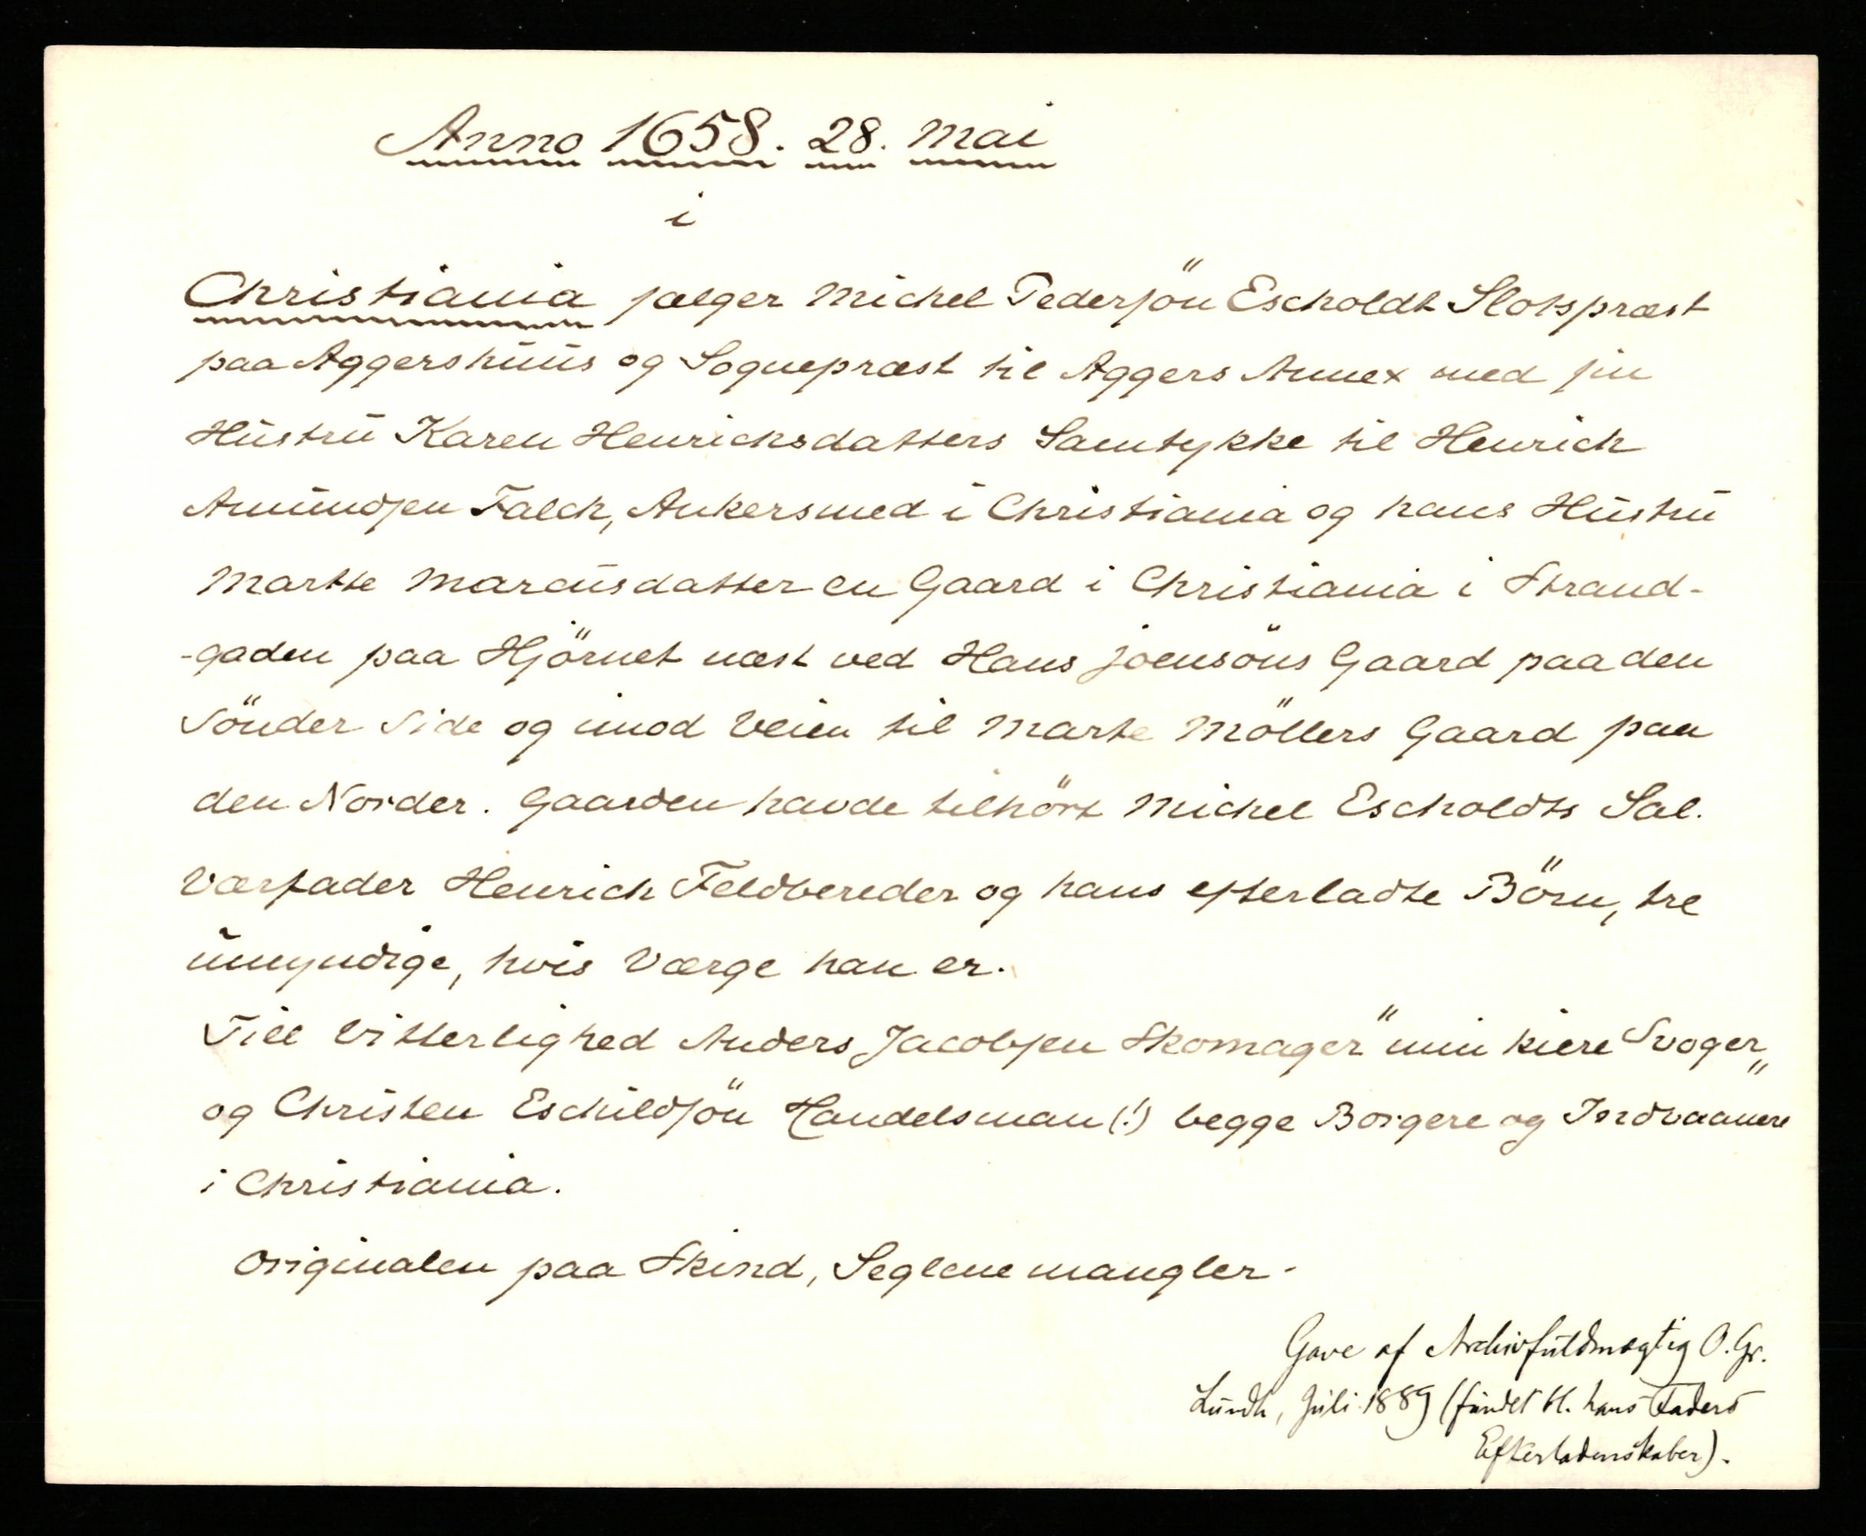 Anno 1658. 28. Mai
i
Christiania sælger Michel Pedersön Escholdt Slotspræst
paa Aggershuus og Sognepræst til Aggers Annex med sin
Hustru Karen Henrichsdatters Samtykke til Henrich
Amundsen Falch, Ankersmed i Christiania og hans Hustru
Martte Marcusdatter en Gaard i Christiania i Strand-
-gaden paa Hjörnet næst ved Hans Joensöns Gaard paa den
Sönder Side og imod Veien til Marte Möllers Gaard paa
den Norder. Gaarden havde tilhört Michel Escholdts Sal.
Værfader Henrich Feldbereder og hans efterladte Börn, tre
umyndige, hvis Værge han er.
Till Vitterlighed Anders Jacobsen Skomager "min kiere Svoger„
og Christen Eschildsön Handelsman (!) begge Borgere og Indvaanere
i Christiania.
Originalen paa Skind, Seglene mangler.
Gave af Archivfuldmægtig O. Gr.
Lundh, Juli 1889 (fundet bl. hans Faders
Efterladenskaber).